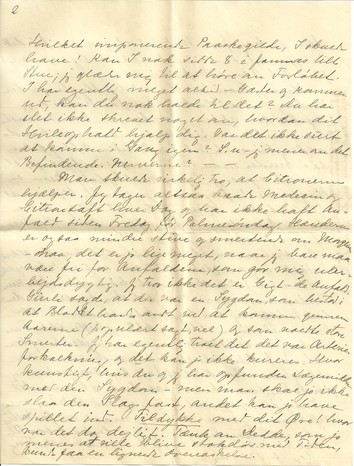 2
Hvilket imponerende Paaskegilde, I skuede
have! Kan I nok sidde 8 i jeres lille
Stue; jeg glæder mig til at høre om Forløbet.
I har egentlig meget altid - Gæster og kommen
ud, kan du nok holde til det? Du har
slet ikke skrevet noget om, hvordan dit
Hvileophold hjalp dig. Var det ikke svært
at komme i Gang igen? D.v.s. jeg mener om det
Befindende. Nerverne? -
Man skulde virkelig tro, at Citronerne
hjælper. Jeg tager altsaa baade Medicin og
Citronsaft hver Dag og har ikke haft An-
fald siden Fredag før Palmesøndag. Hænderne
er ogsaa mindre stive og smertende om Morgen-
en, det er jo lige meget, naar jeg bare maa
være fri for Anfaldene, som gør mig uar-
bejdsdygtig. Jeg tror ikke det er Gigt - de Anfald.
sagde, at der var en Sygdom som bestod i
at Blodet havde ondt ved at komme gennem
Aarerne (populært sagt, vel) og som voldte store
Smerter. Jeg har egentlig troet det var Arterie-
forkalkning og det kan jo ikke kureres. Hvor
med den Sygdom - men man skal jo ikke
slaa den Slags fast, andet kan jo have
spillet ind. Tillykke med dit Øre! hvor
var det dog dejligt. Tænk om Hedda, som jo
mener at ville blive stokdøv med Tiden,
kunde faa en lignende Overraskelse.